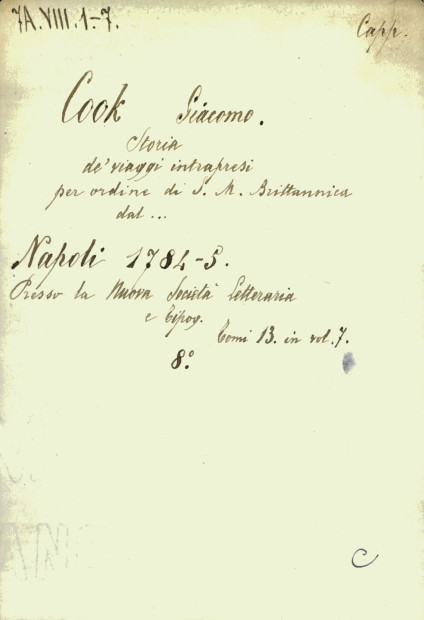 7A.VIII.1-7.
Capp.
Cook Giacomo.
Storia
de' viaggi intrapresi
per ordine di S. M. Brittannica
dal ...
Napoli 1784-5.
Presso la Nuova Società Letteraria
e Tipog.
Tomi 13. in vol. 7.
8.°
C